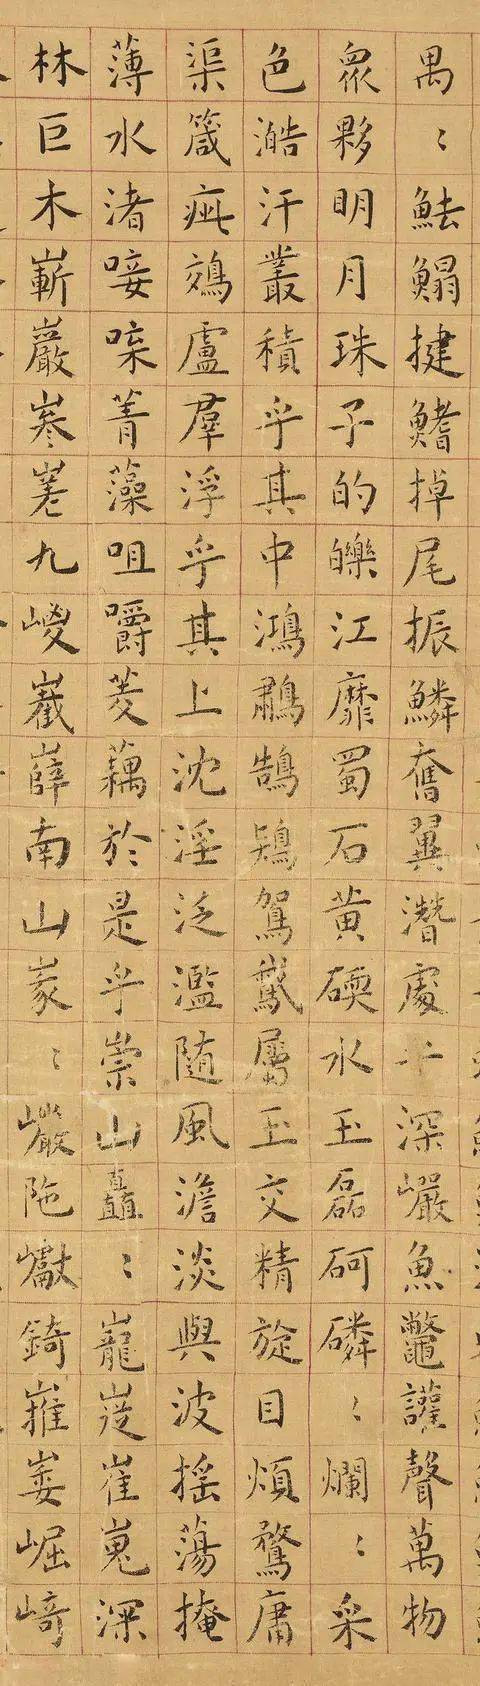 禺〻魼鰨揵鰭掉尾振鱗奮翼潛處乎深巖魚鼈讙聲萬物
眾夥明月珠子的皪江靡蜀石黃碝水玉磊砢磷〻爛〻采
色澔汗叢積乎其中鴻鷫鵠鴇駕鵞屬玉交精旋目煩鶩庸
渠箴疵鵁盧羣浮乎其上沈淫泛濫隨風澹淡與波搖蕩掩
薄水渚唼喋菁藻咀嚼菱藕於是乎崇山矗〻巃嵸崔嵬深
林巨木嶄巖嵾嵳九嵕嶻嶭南山峩〻巖陁巘錡嶊崣崛崎